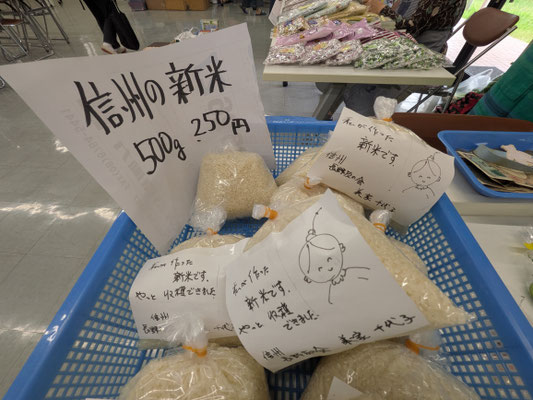 信州の新米
500g 250円
私が作った
新米です、
信州
私が作った
新米です、
やっと 収穫できました
信州
私が作った
新米です、
やっと 収穫
できました、
信州